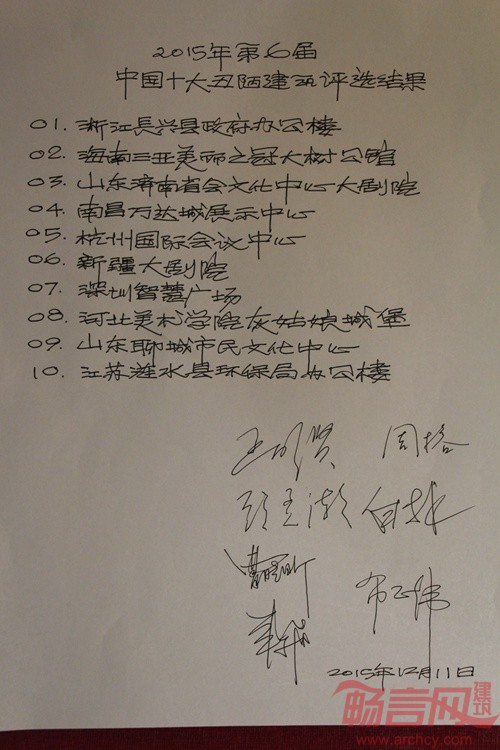 2015年第6届
中国十大丑陋建筑评选结果
01. 浙江長兴县政府办公楼
02. 海南三亚美丽之冠大树公馆
03. 山东濟南省会文化中心大剧院
04. 南昌万达城展示中心
05. 杭州国际会议中心
06. 新疆大剧院
07. 深圳智慧广场
08. 河北美术学院灰姑娘城堡
09. 山东聊城市民文化中心
10. 江苏涟水县环保局办公楼
王明贤 周榕
顾孟潮
布正伟
2015年12月11日
畅言网 建筑
www.archcy.com